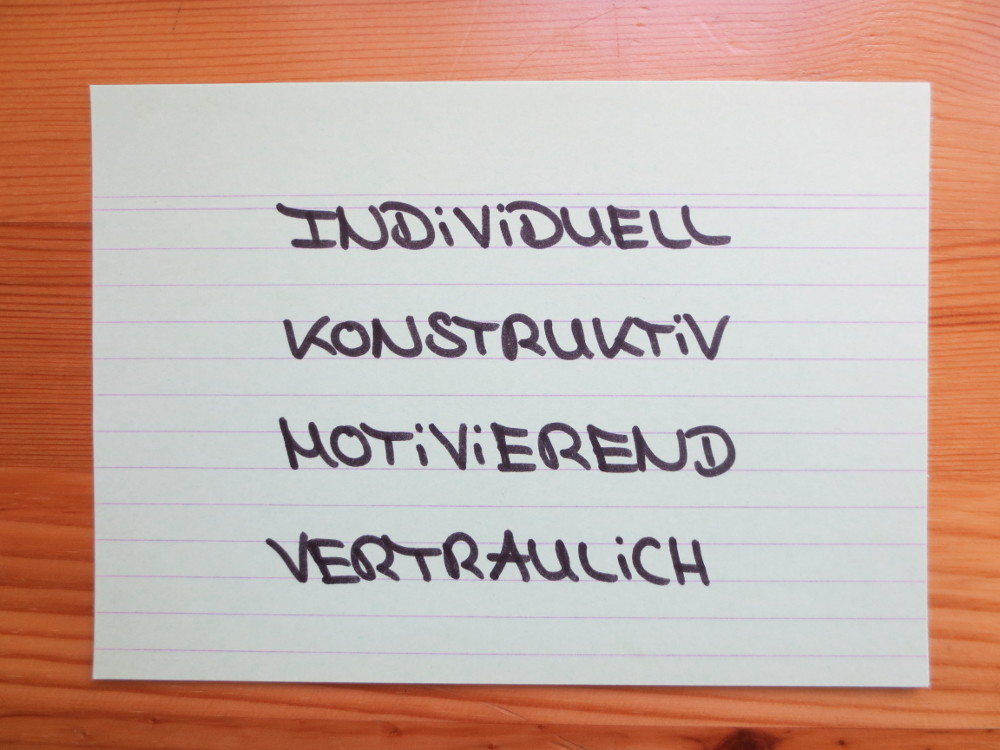 INDiViDUELL
KONSTRUKTiV
MOTiViEREND
VERTRAULiCH